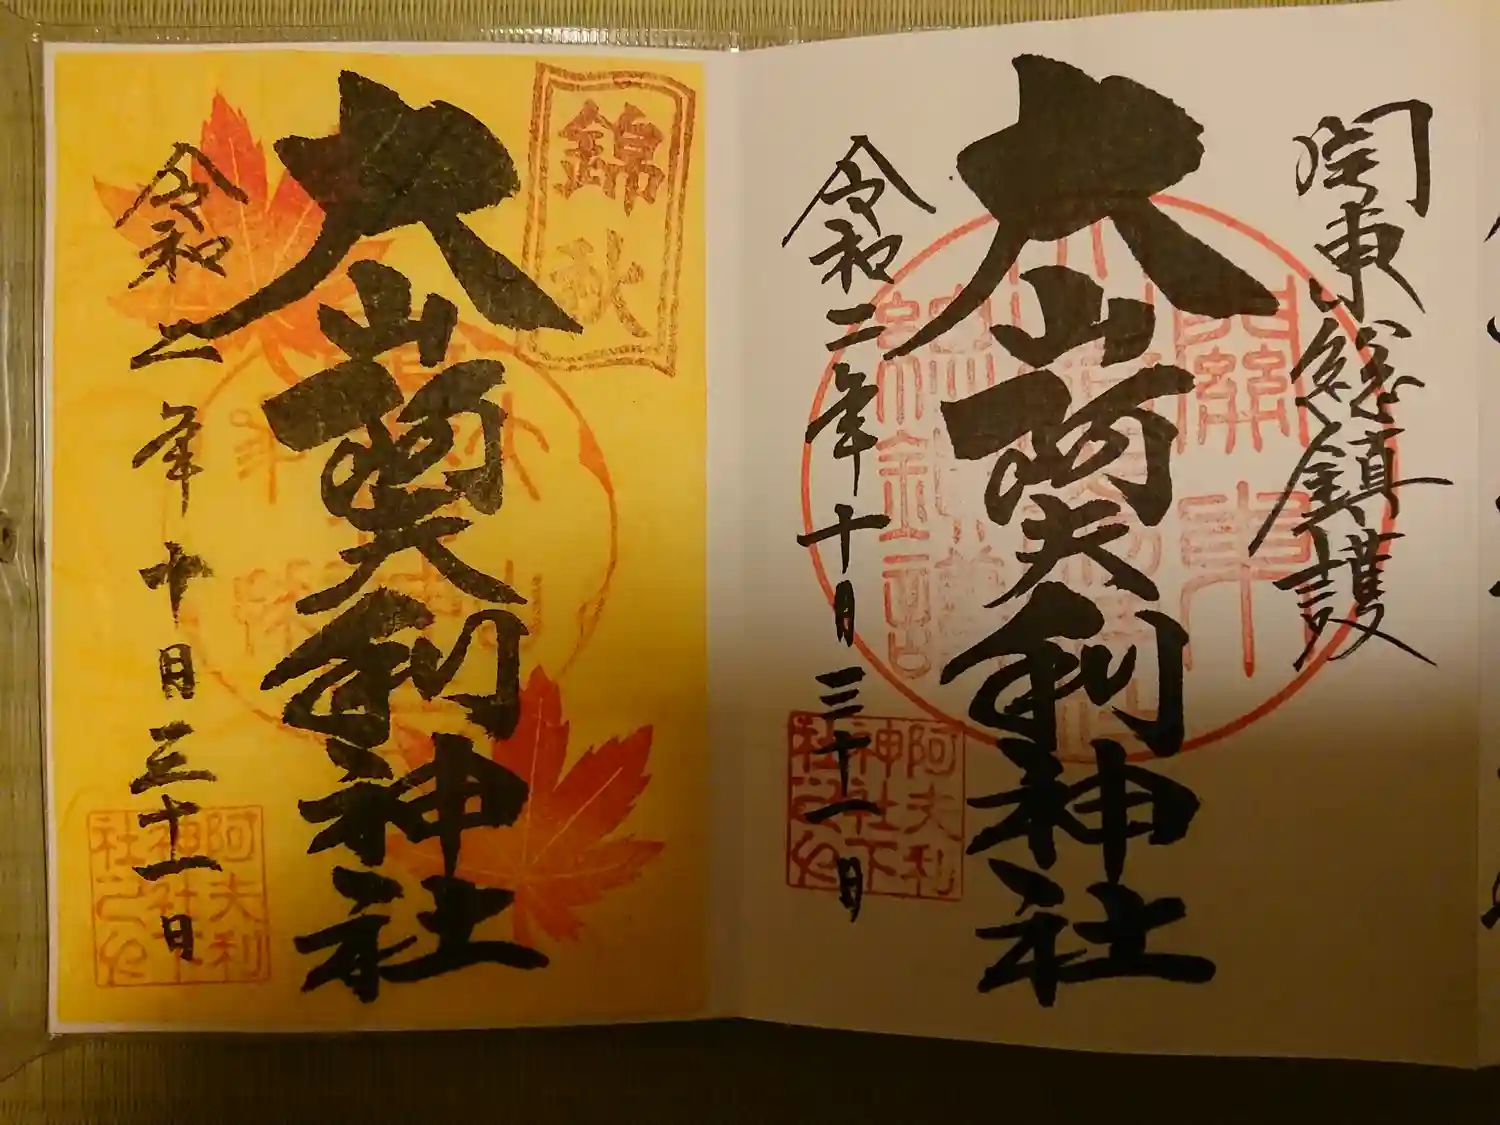 関東総鎮護
大山阿夫利神社
令和二年十月三十一日
阿夫利
神社下
社
錦秋
大山阿夫利神社
令和二年十月三十一日
阿夫利
神社下
社